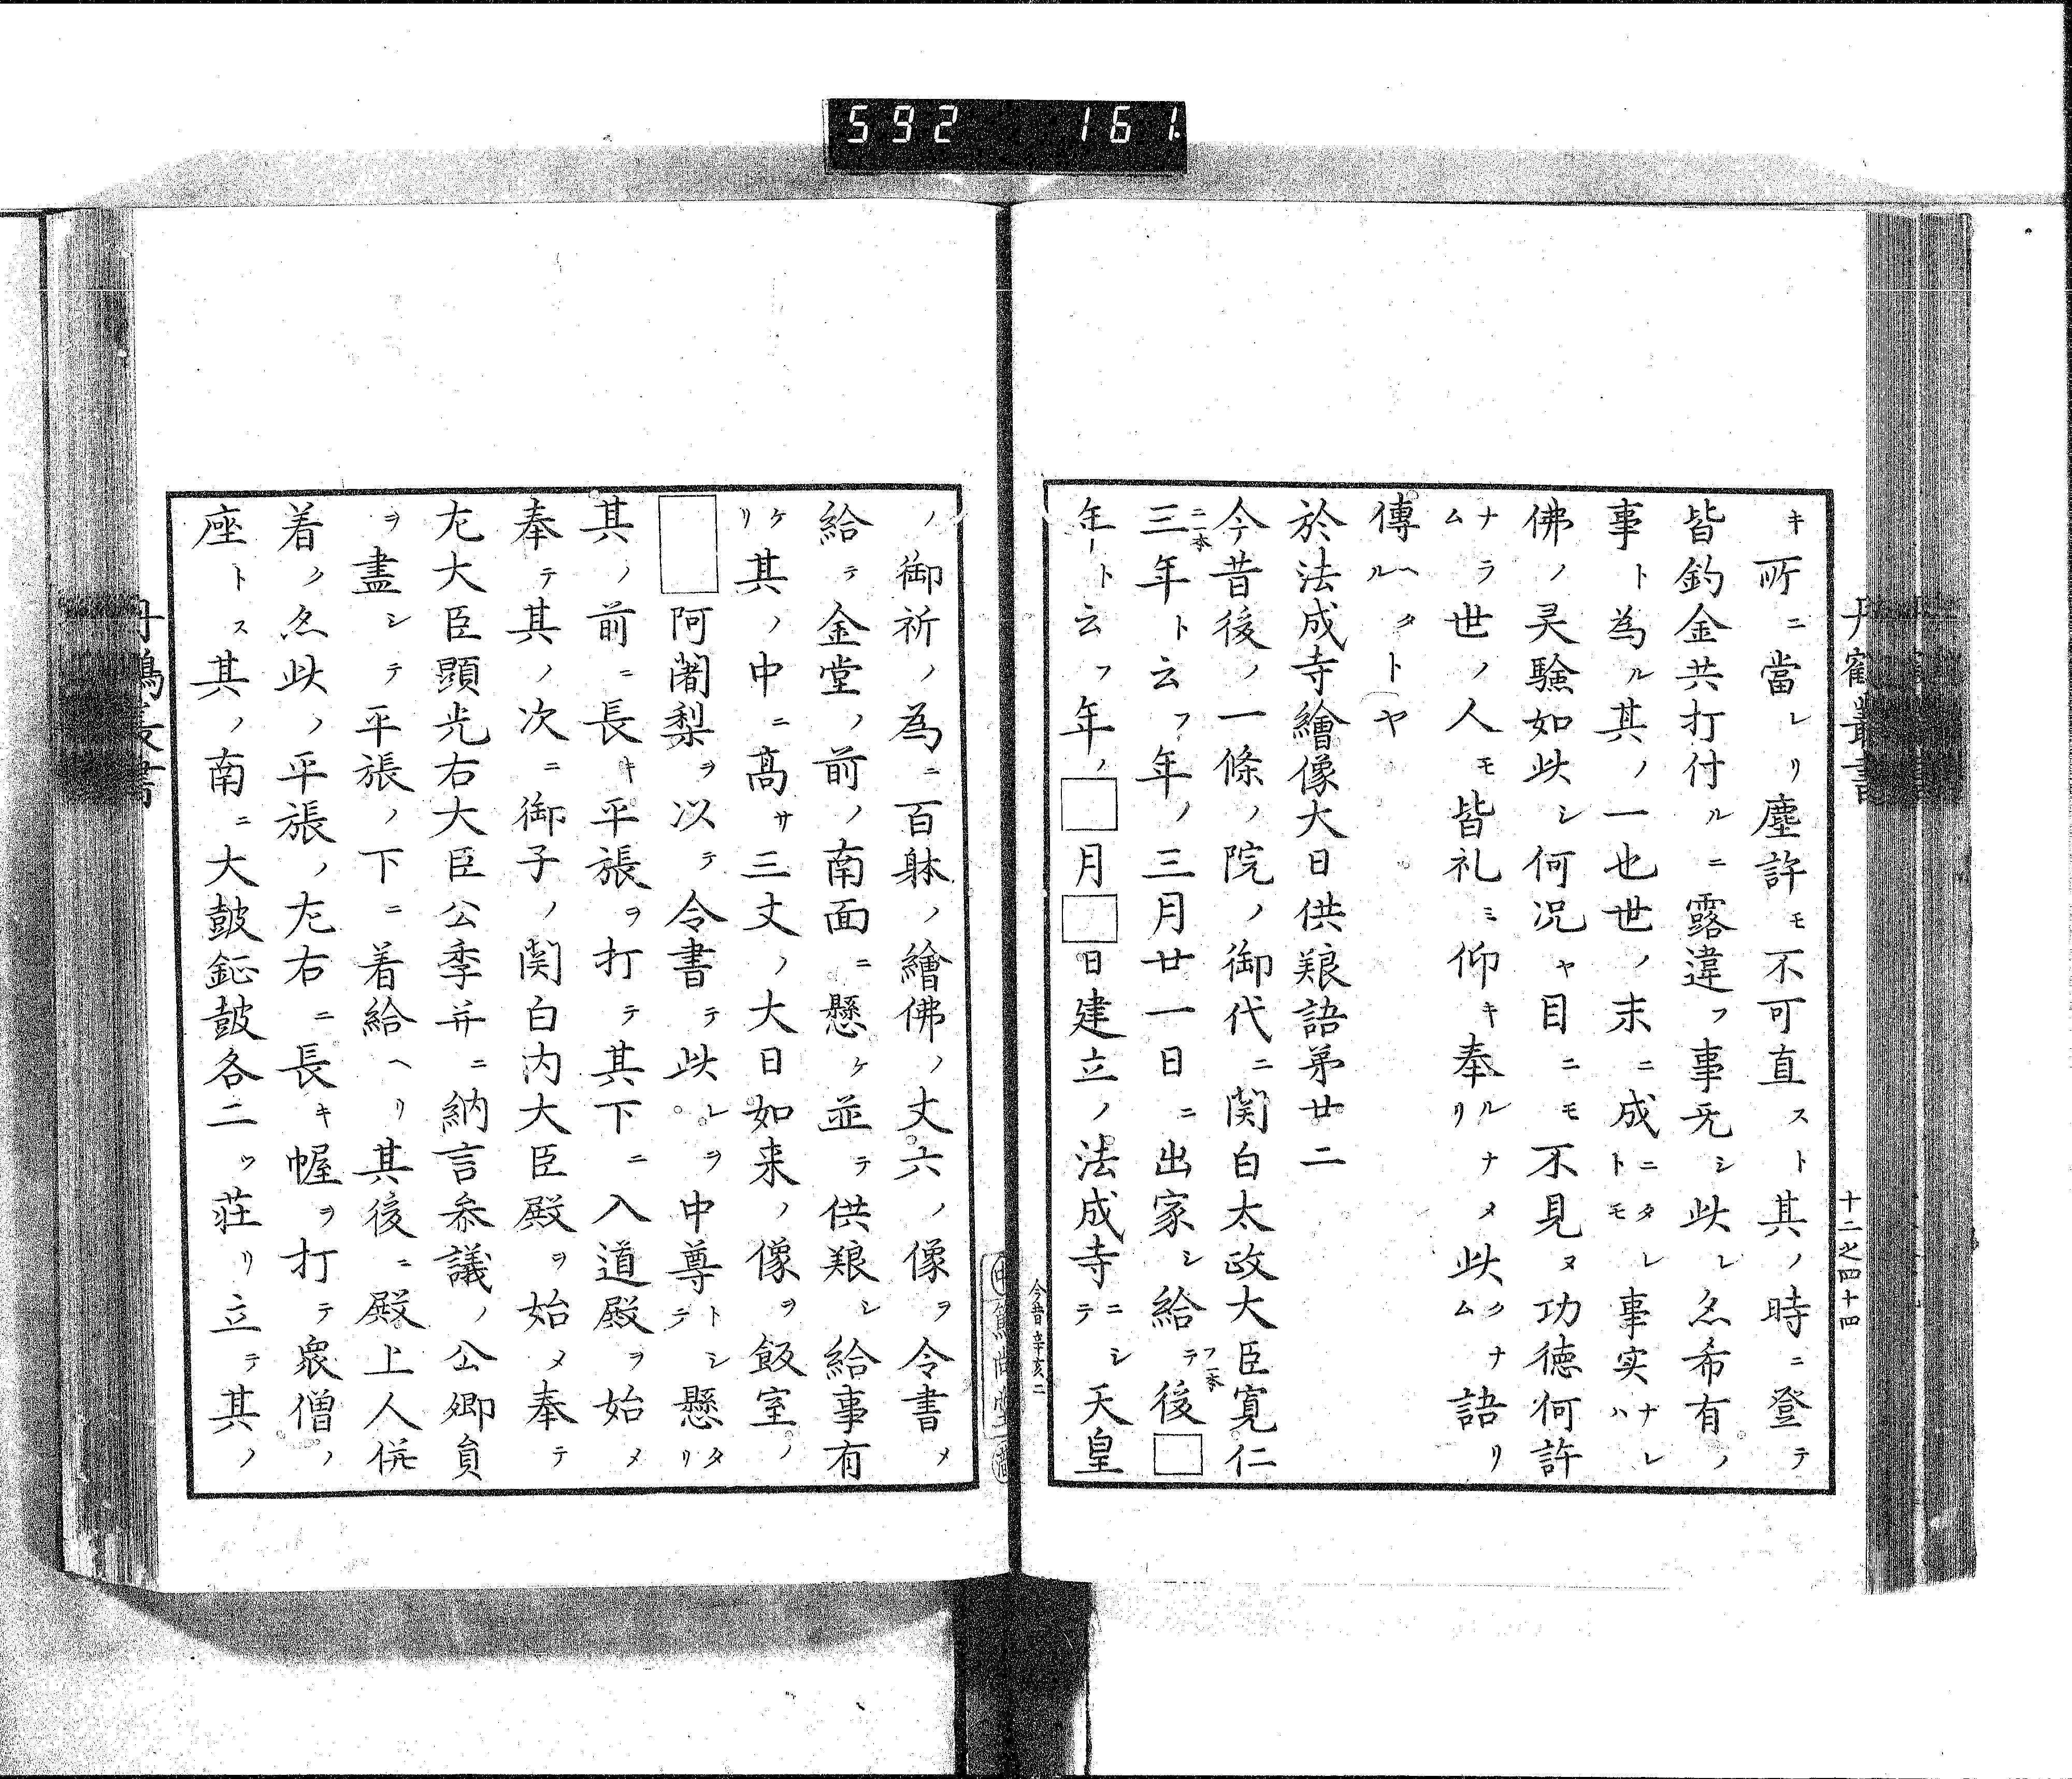 592 161.
丹鶴叢書
十二之四十四
キ所ニ當レリ塵許モ不可直スト其ノ時ニ登テ
皆釣金共打付ルニ露違フ事旡シ此レ尓希有ノ
事ト為ル其ノ一也世ノ末ニ成ニタレトモ事実ナレハ
佛ノ㚑驗如此シ何况ヤ目ニモ不見ヌ功徳何許
ナラム世ノ人モ皆礼ミ仰キ奉ルリナナメ此クナム語リ
傳ヘルタトヤ
於法成寺繪像大日供粮語第廿二
今昔後ノ一條ノ院ノ御代ニ関白太政大臣寛仁
三年ト云フ年ノ三月廿一日ニ出家シ給テ後□
ニ一本
フ一本
年ト云フ年ノ□月□日建立ノ法成寺ニシテ天皇
今昔 辛亥二
ノ御祈ノ為ニ百躰ノ繪佛ノ丈六ノ像ヲ令書メ
給テ金堂ノ前ノ南面ニ懸ケ並テ供粮シ給事有
ケリ其ノ中ニ髙サ三丈ノ大日如来ノ像ヲ飯室ノ
□阿闍梨ヲ以テ令書テ此レヲ中尊トシテ懸タリ
其ノ前ニ長キ平張ヲ打テ其下ニ入道殿ヲ始メ
奉テ其ノ次ニ御子ノ関白内大臣殿ヲ始メ奉テ
左大臣顕光右大臣公季并ニ納言叅議ノ公卿員
ヲ盡シテ平張ノ下ニ着給ヘリ其後ニ殿上人併
着ク尓此ノ平張ノ左右ニ長キ幄ヲ打テ衆僧ノ
座トス其ノ南ニ大皷鉦皷各二ツ荘リ立テ其ノ